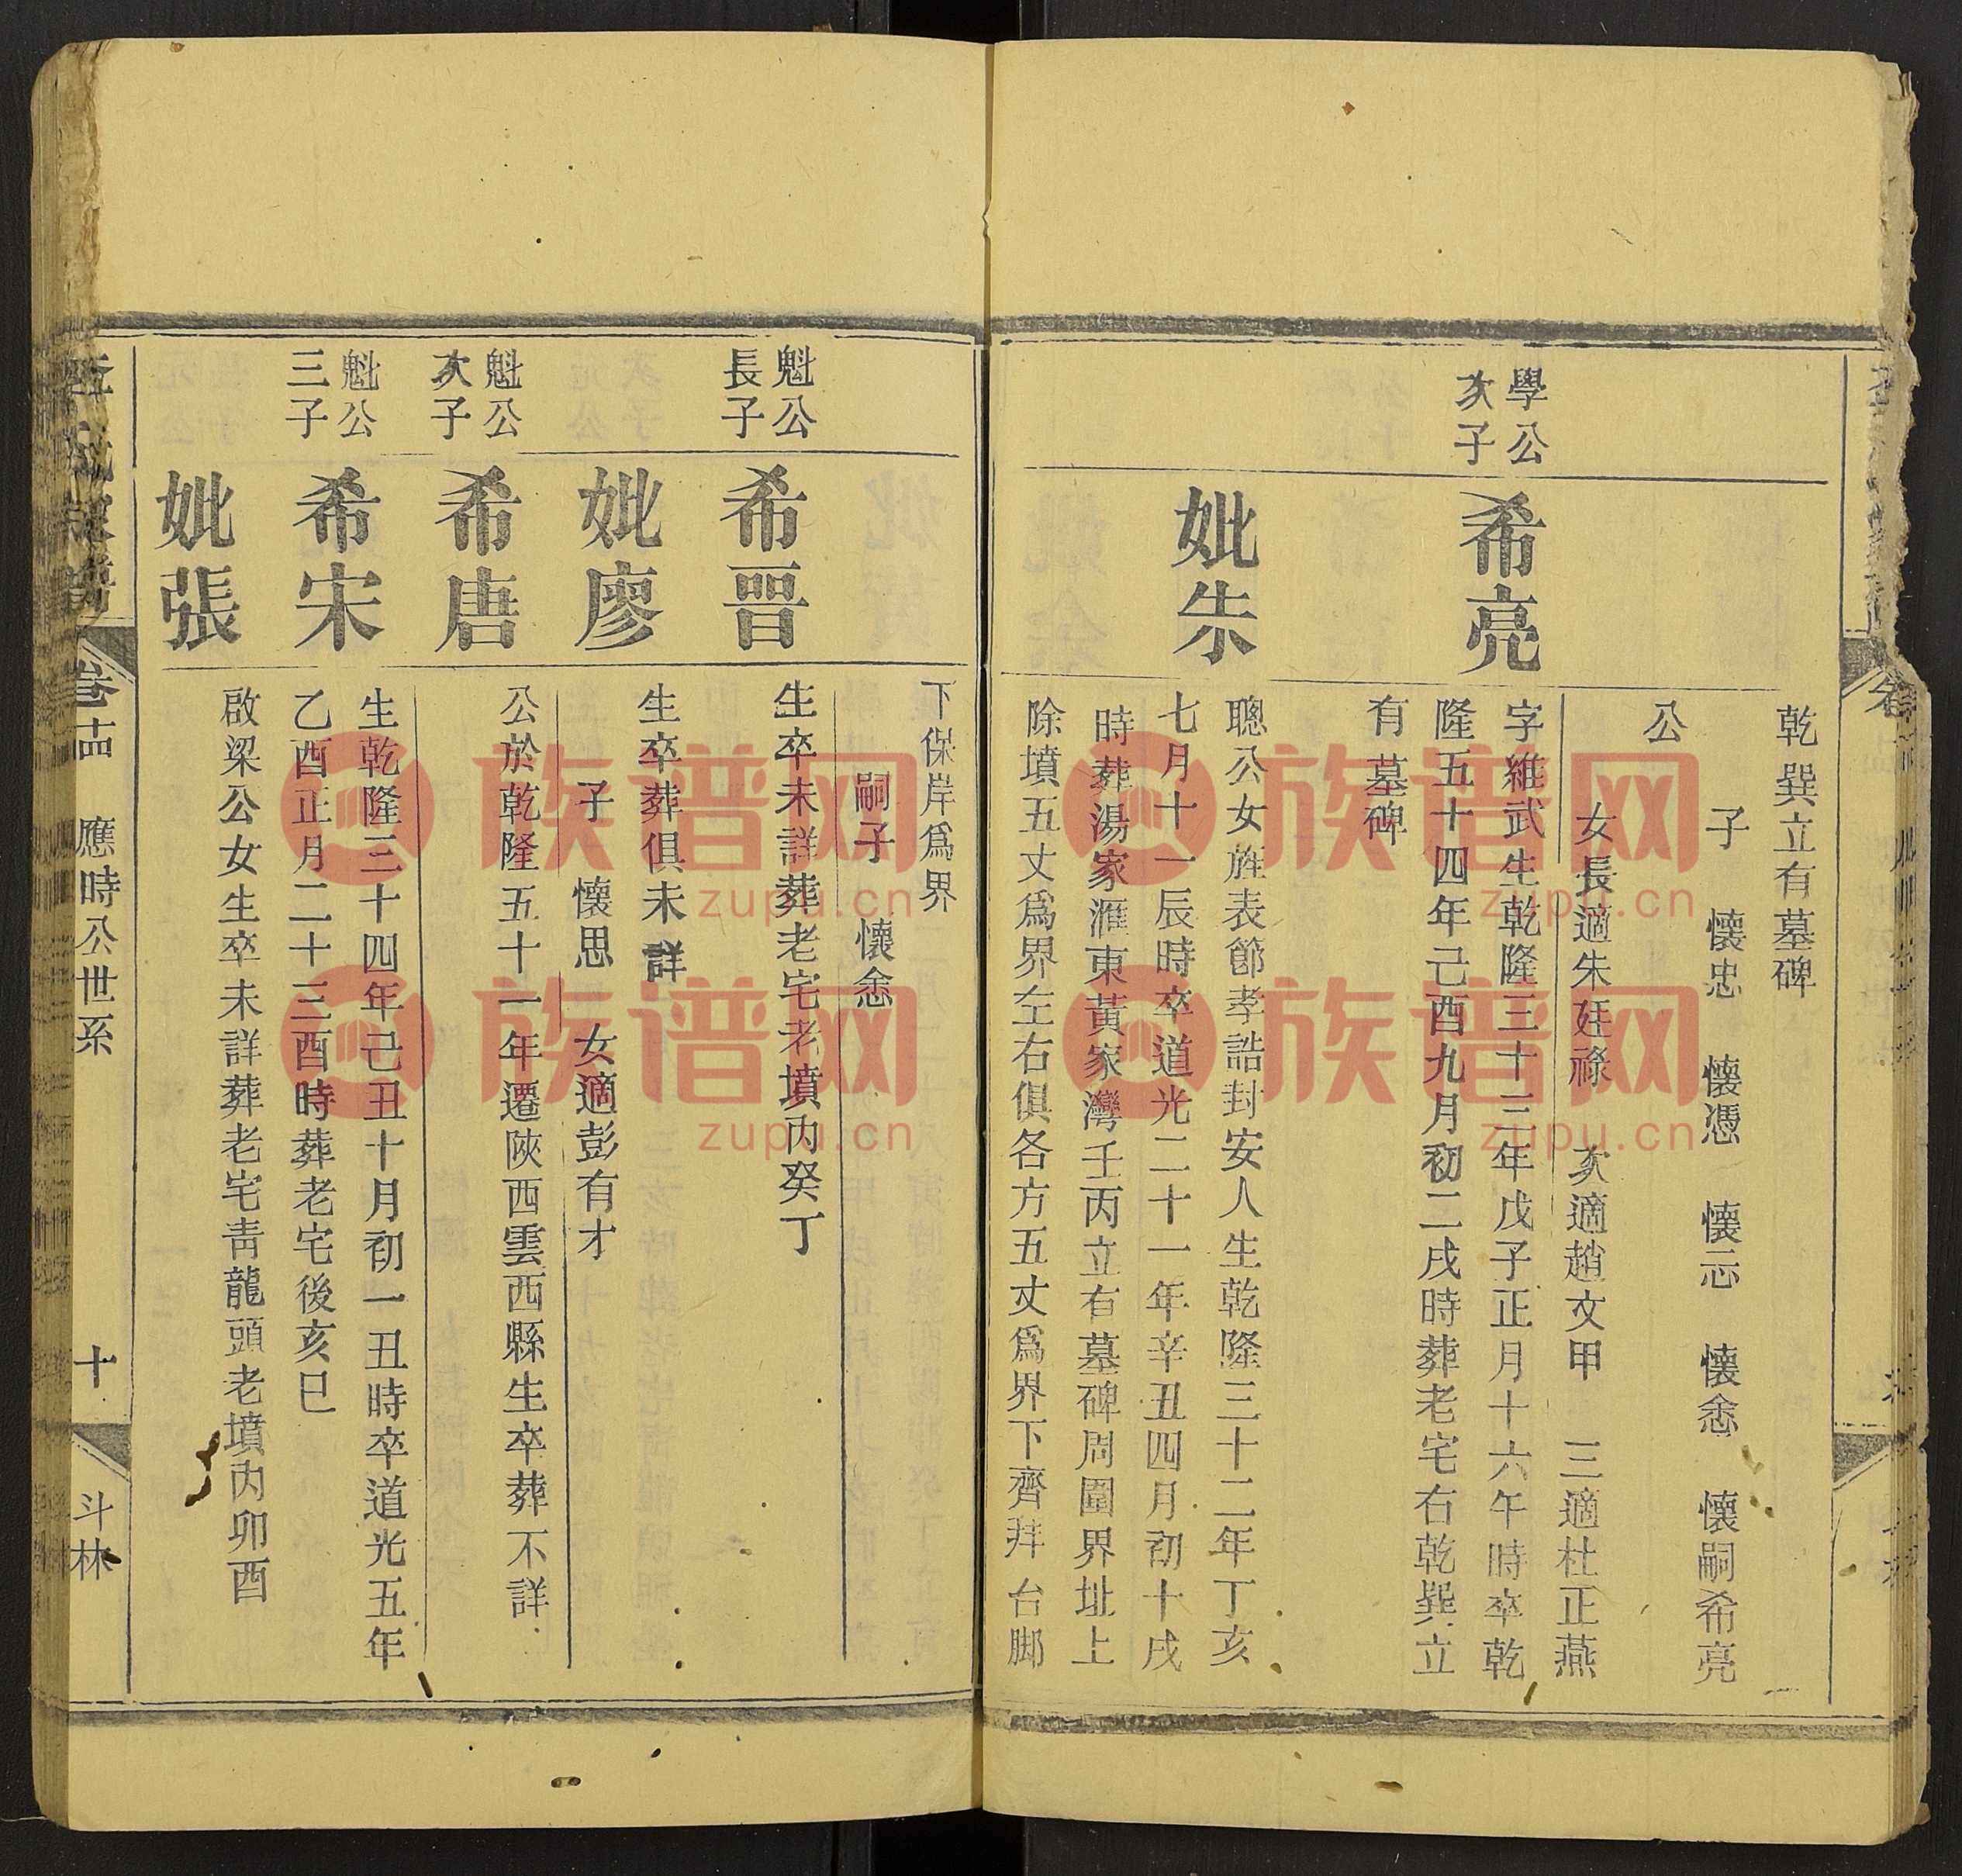 乾巽立有墓碑
子 懷忠 懷憑 懷示 懷悆 懷嗣希亮
公
女長適朱廷祿 次適趙文甲 三適杜正燕
學公
次子
希亮
字維武生乾隆三十三年戊子正月十六午時卒乾
隆五十四年己酉九月初二戌時葬老宅右乾巽立
有墓碑
妣朱
聰公女旌表節孝誥封安人生乾隆三十二年丁亥
七月十一辰時卒道光二十一年辛丑四月初十戌
時葬湯家滙東黃家灣壬丙立有墓碑周圍界址上
除墳五丈爲界左右俱各方五丈爲界下齊拜台脚
下保岸爲界
嗣子 懷悆
魁公
長子
希晋
生卒未詳葬老宅老墳內癸丁
妣廖
生卒葬俱未詳
子 懷思 女適彭有才
魁公
次子
希唐
公於乾隆五十一年遷陝西雲西縣生卒葬不詳
魁公
三子
希宋
生乾隆三十四年己丑十月初一丑時卒道光五年
乙酉正月二十三酉時葬老宅後亥巳
妣張
啟梁公女生卒未詳葬老宅靑龍頭老墳內卯酉
卷十四 應時公世系 十 斗林
族谱网
zupu.cn
族谱网
zupu.cn
族谱网
zupu.cn
族谱网
zupu.cn